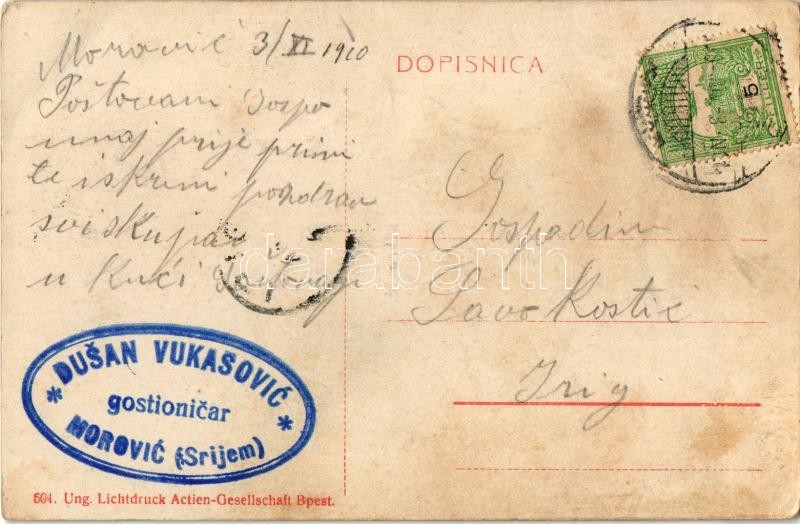 Morović 3/XI 1910
Poštovani Gospo
prije primi
te iskreni pozdrav
svi skupa
u kući
DOPISNICA
5
Gospodin
Savo Kostić
Irig
* DUŠAN VUKASOVIĆ *
gostioničar
MOROVIĆ (Srijem)
604. Ung. Lichtdruck Actien-Gesellschaft Bpest.
darabanth